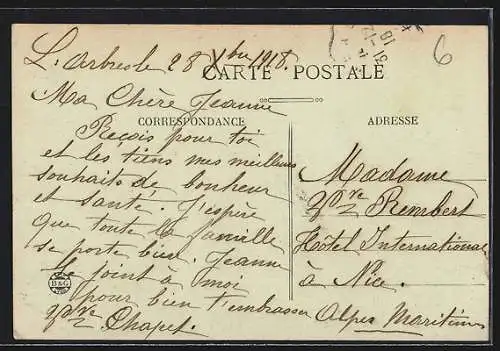 L'Arbresle 28 Xbre 1918.
CARTE POSTALE
CORRESPONDANCE
Ma Chère Jeanne
Reçois pour toi
et les tiens mes meilleurs
souhaits de bonheur
et santé. J'espère
que toute la famille
se porte bien. Jeanne
se joint à moi
pour bien t'embrasser
Vve Chapet.
B&G
ADRESSE
Madame
Vve Rembert
Hotel International
à Nice.
Alpes Maritimes
31-12
18
6